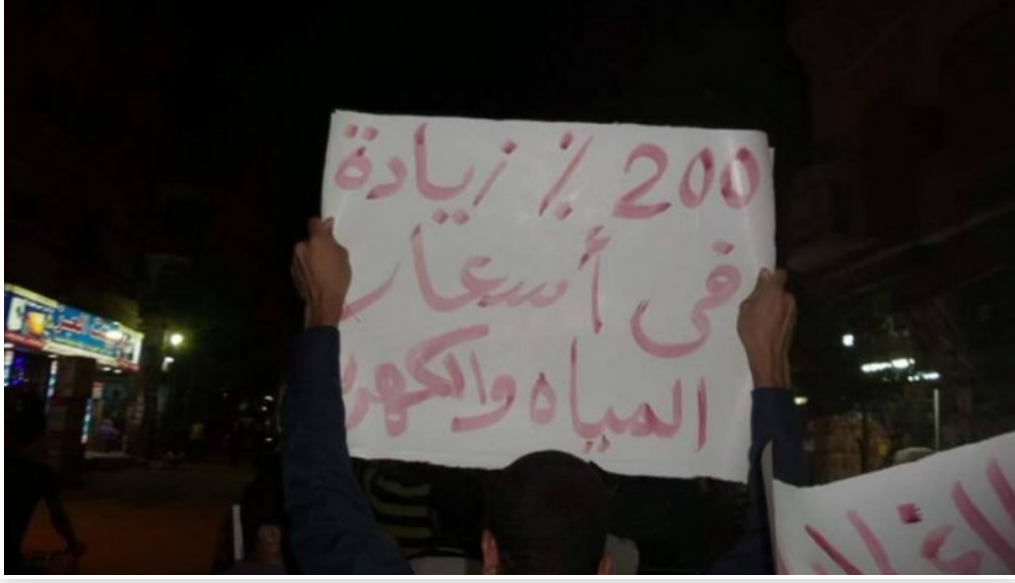 200 % زيادة
في أسعار
المياه والكهر